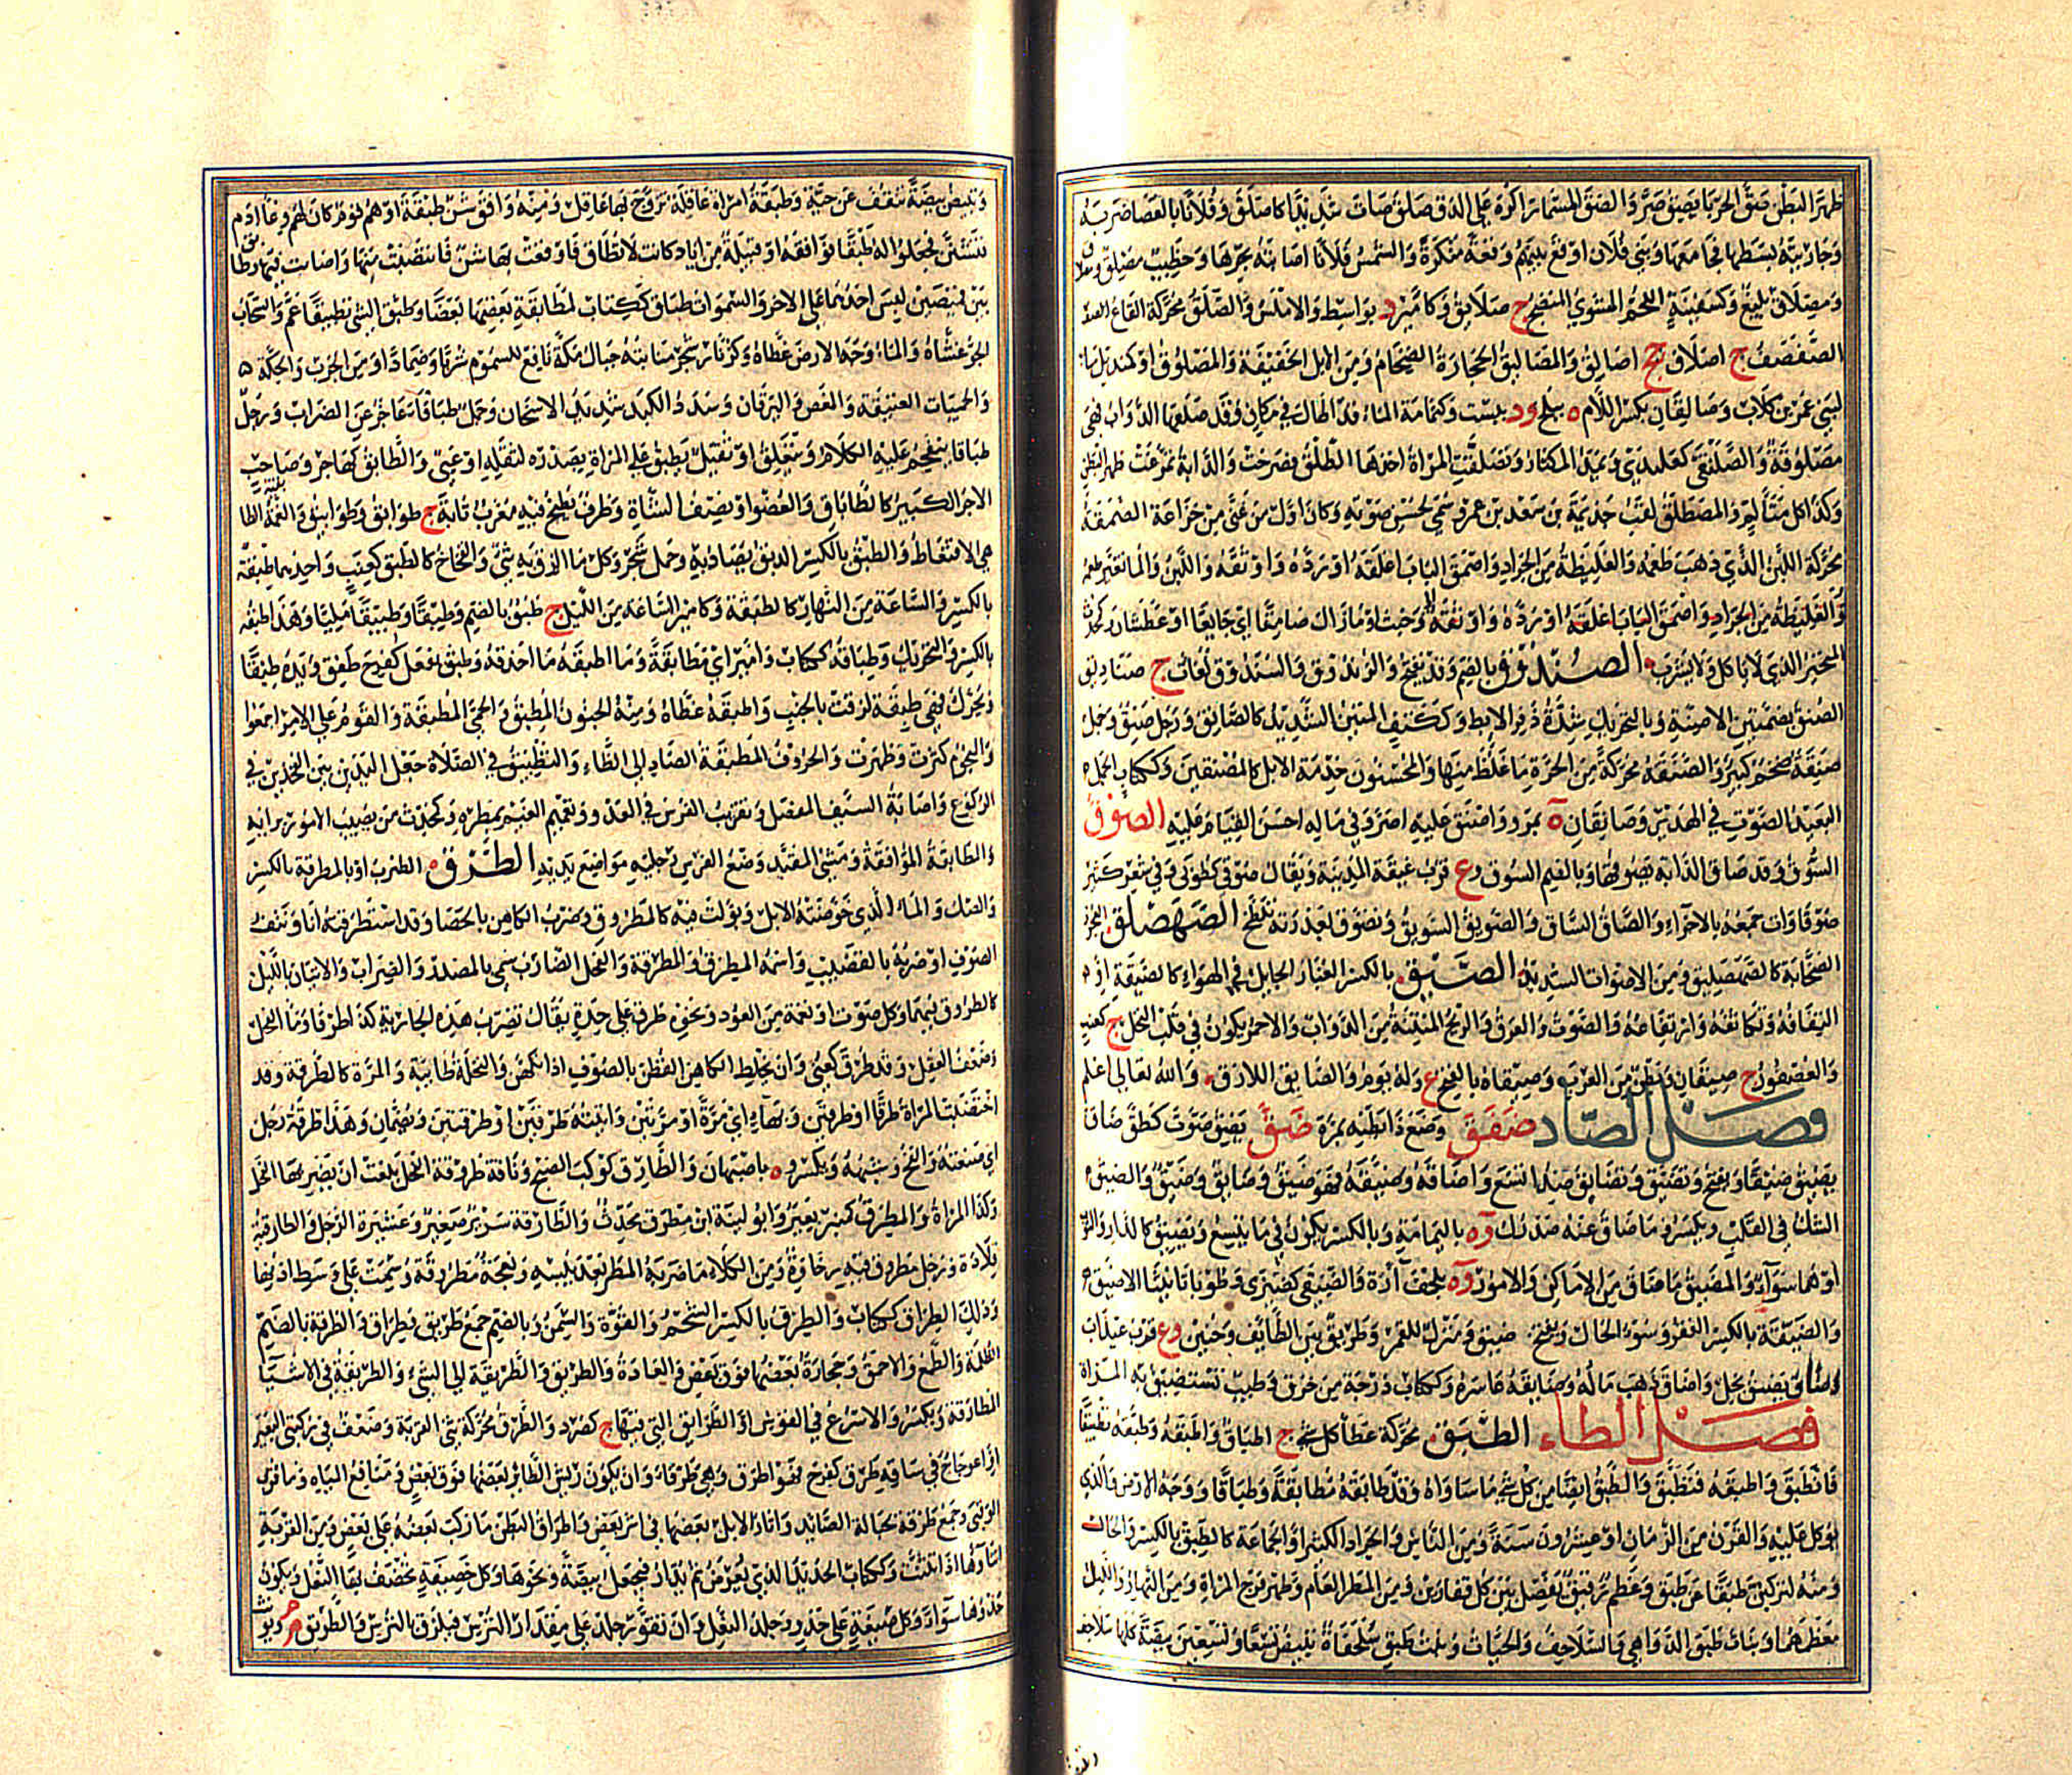 ظهرا لبطن صَقُّ الحربا يصِيق صَرَّ والصَّفق المسمار اكره على الدق صلق صات شديدا كاصلق وفلانا بالعصا ضربه
وجاريته بسطها فجامعها وبني فلان اوقع بهم وقعة منكرة والشمس فلانا اصابته بحرها وخطيب مصلق
ومصلاق بليغ وكسفينة اللحم المشوي المنضج ج صلائق وكامير د بواسط والاملس والصلق محركة القاع
الصفصف ج اصلاق جج اصاليق والمصاليق الحجارة الضخام ومن الابل الخفيفة والمصلوق او كمنديل ماء
لبني عمرو بن كلاب وصالقان بكسر اللام ه ببلخ ود ببست وكثمامة الماء قد اطال في مكان وقد صلقها الدواب فهي
مصلوقة والصلنقى كعلندى ويمد المكثار وتصلقت المراة اخذها الطلق فصرخت والدابة تمرغت ظهرا لبطن
وكذا كل متألم والمصطلق لقب جذيمة بن سعد بن عمرو سمي لحسن صوته وكان اول من غنى من خزاعة الصمقة
محركة اللبن الذي ذهب طعمه والغليظة من الحرار واصمق الباب اغلقه او رده واوثقه واللبن والماء تغير طعمه
والغليظة من الحرار واصمق الباب اغلقه او رده واوثقه وخبث او مازال صامقا اي جايعا او عطشان
المتخير الذي لا ياكل ولا يشرب الصندوق بالضم وقد يفتح والزندوق والسندوق لغات ج صناديق
الصنق بضمتين الاصنة وبالتحريك شدة ذفر الابط وككتف المتين الشديد كالصانق ورجل صنق وجمل
صنقة ضخم كبير والصنقة محركة من الحرة ما غلظ منها والمحسنون خدمة الابل كالمصنقين وككتاب الجمل
البعيد الصوت في الهدير وصانقان ة بمرو واصنق عليه اصر وفي ماله احسن القيام عليه الصوق
السوق وقد صاق الدابة يصوقها وبالضم السوق وع قرب غيقة المدينة ويقال صوقى كطوبى وفي شعر كثير
صوقاوات جمعه بالاجزاء والصاق الساق والصويق السويق وتصوق بعذرته تلطخ الصهصلق العجوز
الصخابة كالصهصليق ومن الاصوات الشديد الصيق بالكسر الغبار الجايل في الهواء كالصيقة او
التفافه وتكاثفه وارتفاعه والصوت والعرق والريح المنتنة من الدواب والاحمر يكون في قلب النخل ج كعنب
والعصفور ج صيقان وبطن من العرب وصيقاة بالفتح ع وله يوم والصايق اللازق والله تعالى اعلم
فصل الضاد ضفق وضع ذا بطنه بمرة ضق يضق صوت كطق ضاق
يضيق ضيقا ويفتح وتضيق وتضايق ضد اتسع واضاقه وضيقه فهو ضيق وضايق وضيق والضيق
الشك في القلب ويكسر وما ضاق عنه صدرك وة باليمامة وبالكسر يكون في ما يتسع ويضيق كالدار والثوب
او هما سواء والمضيق ما ضاق من الاماكن والامور وة بلحف آرة والضيقى كضيزى وطوبى تانيثا الاضيق
والضيقة بالكسر الفقر وسوء الحال ويفتح ضيق ومنزلة للقمر وطريق بين الطائف وحنين وع قرب عيذاب
وضاق يضيق بخل واضاق ذهب ماله وضايقه عاسره وككتاب درجة من خرق وطيب تستضيق به المراة
فصل الطاء الطبق محركة غطا كل شيء ج اطباق واطبقه وطبقه تطبيقا
فانطبق واطبقه فتطبق والطبق ايضا من كل شيء ما ساواه وقد طابقه مطابقة وطباقا ووجه الارض والذي
يؤكل عليه والقرن من الزمان او عشرون سنة ومن الناس والجراد الكثير او الجماعة كالطبق بالكسر والحال
ومنه لتركبن طبقا عن طبق وعظم رقيق يفصل بين كل فقارين ومن المطر العام وظهر فرج المراة ومن النهار والليل
معظمهما وبنات طبق الدواهي والسلاحف والحيات وبنت طبق سلحفاة تبيض تسعا وتسعين بيضة كلها سلاحف
وتبيض بيضة تنقف عن حية وطبقة امراة عاقلة تزوج بها عاقل ومنه وافق شن طبقة او هم قوم كان لهم وعاء ادم
فتشنن فجعلوا له طبقا فوافقه او قبيلة من اياد كانت لا تطاق فاوقعت بها شن فانتصفت منها واصابت فيها وطابق
بين قميصين لبس احدهما على الاخر والسموات طباق ككتاب لمطابقة بعضها بعضا وطبق الشي تطبيقا عم والسحاب
الجو غشاه والماء وجه الارض غطاه وكزنار شجر منابته جبال مكة نافع للسموم شربا وضمادا ومن الجرب والحكة
والحميات العتيقة والمغص واليرقان وسدد الكبد شديد الاسخان وجمل طباقاء عاجز عن الضراب ورجل
طباقا ينعجم عليه الكلام وينغلق او ثقيل يطبق على المراة بصدره لثقله او عيي والطابق كهاجر وصاحب
الاجر الكبير كالطاباق والعضو او نصف الشاة وظرف يطبخ فيه معرب تابه ج طوابق وطوابيق والعمة الطابقية
هي الاقتعاط والطبق بالكسر الدبق يصاد به وحمل شجر وكل ما الزق به شيء والفخاخ كالطبق كعنب واحدتهما طبقة
بالكسر والساعة من النهار كالطبقة وكامير الساعة من الليل ج طبق بالضم وطبقا وطبيقا مليا وهذا طبقه
بالكسر والتحريك وطباقه ككتاب وامير اي مطابقه وما اطبقه ما احذقه وطبق يفعل كفرح طفق ويده طبقا
ويحرك فهي طبقة لزقت بالجنب واطبقه غطاه ومنه الجنون المطبق والحمى المطبقة والقوم على الامر اجمعوا
والنجوم كثرت وظهرت والحروف المطبقة الصاد الى الظاء والتطبيق في الصلاة جعل اليدين بين الفخذين في
الركوع واصابة السيف المفصل وتقريب الفرس في العدو وتعميم الغيث بمطره وكمحدث من يصيب الامور برايه
والمطابقة الموافقة ومشي المقيد ووضع الفرس رجليه مواضع يديه الطرق الضرب او بالمطرقة بالكسر
والصك والماء الذي خوضته الابل وبولت فيه كالمطروق وضرب الكاهن بالحصا وقد استطرقته انا ونتف
الصوف او ضربه بالقضيب واسمه المطرق والمطرقة والفحل الضارب سمي بالمصدر والضراب والاتيان بالليل
كالطروق فيهما وكل صوت او نغمة من العود ونحوه طرق على حدة يقال تضرب هذه الجارية كذا طرقا وماء الفحل
وضعف العقل وقد طرق كعني وان يخلط الكاهن القطن بالصوف اذا تكهن والنخلة طائية والمرة كالطرقة وقد
اختضبت المراة طرقا او طرقين وبهاء اي مرة او مرتين واتيته طرقين او طرقتين ويضمان وهذا طرقة رجل
اي صنعته والفخ وشبهه ويكسر وه باصبهان والطارق كوكب الصبح وناقة طروقة الفحل بلغت ان يضربها الفحل
وكذا المراة والمطرق كمنبر بعير وابو لبنة ابن مطرق محدث والطارقة سرير صغير وعشيرة الرجل والطارقية
قلادة ورجل مطروق فيه رخاوة ومن الكلاء ما ضربه المطر بعد يبسه ونعجة مطروقة وسمت على وسط اذنها
وذلك الطراق ككتاب والطرق بالكسر الشحم والقوة والسمن وبالضم جمع طريق وطراق والطرقة بالضم
الظلمة والطمع والاحمق وحجارة بعضها فوق بعض والعادة والطريق والطريقة الى الشيء والطريقة في الاشياء
المطارقة ويكسر والاسروع في القوس او الطرايق التي فيها ج كصرد والطرق محركة ثني القربة وضعف في ركبتي البعير
او اعوجاج في ساقه طرق كفرح فهو اطرق وهي طرقاء وان يكون ريش الطائر بعضها فوق بعض ومناقع المياه وما قرب
الوقبى وجمع طرقة لحبالة الصائد واثار الابل بعضها في اثر بعض واطراق البطن ما ركب بعضه على بعض ومن القربة
اثناؤها اذا تثنت وككتاب الحديد الذي يعرض ثم يدار فيجعل بيضة ونحوها وكل خصيفة تخصف بها النعل ويكون
حذوها سواء وكل صنيعة على حذو وجلد النعل وان تقور جلد على مقدار الترس فيلزق بالترس والطريق م ويؤنث